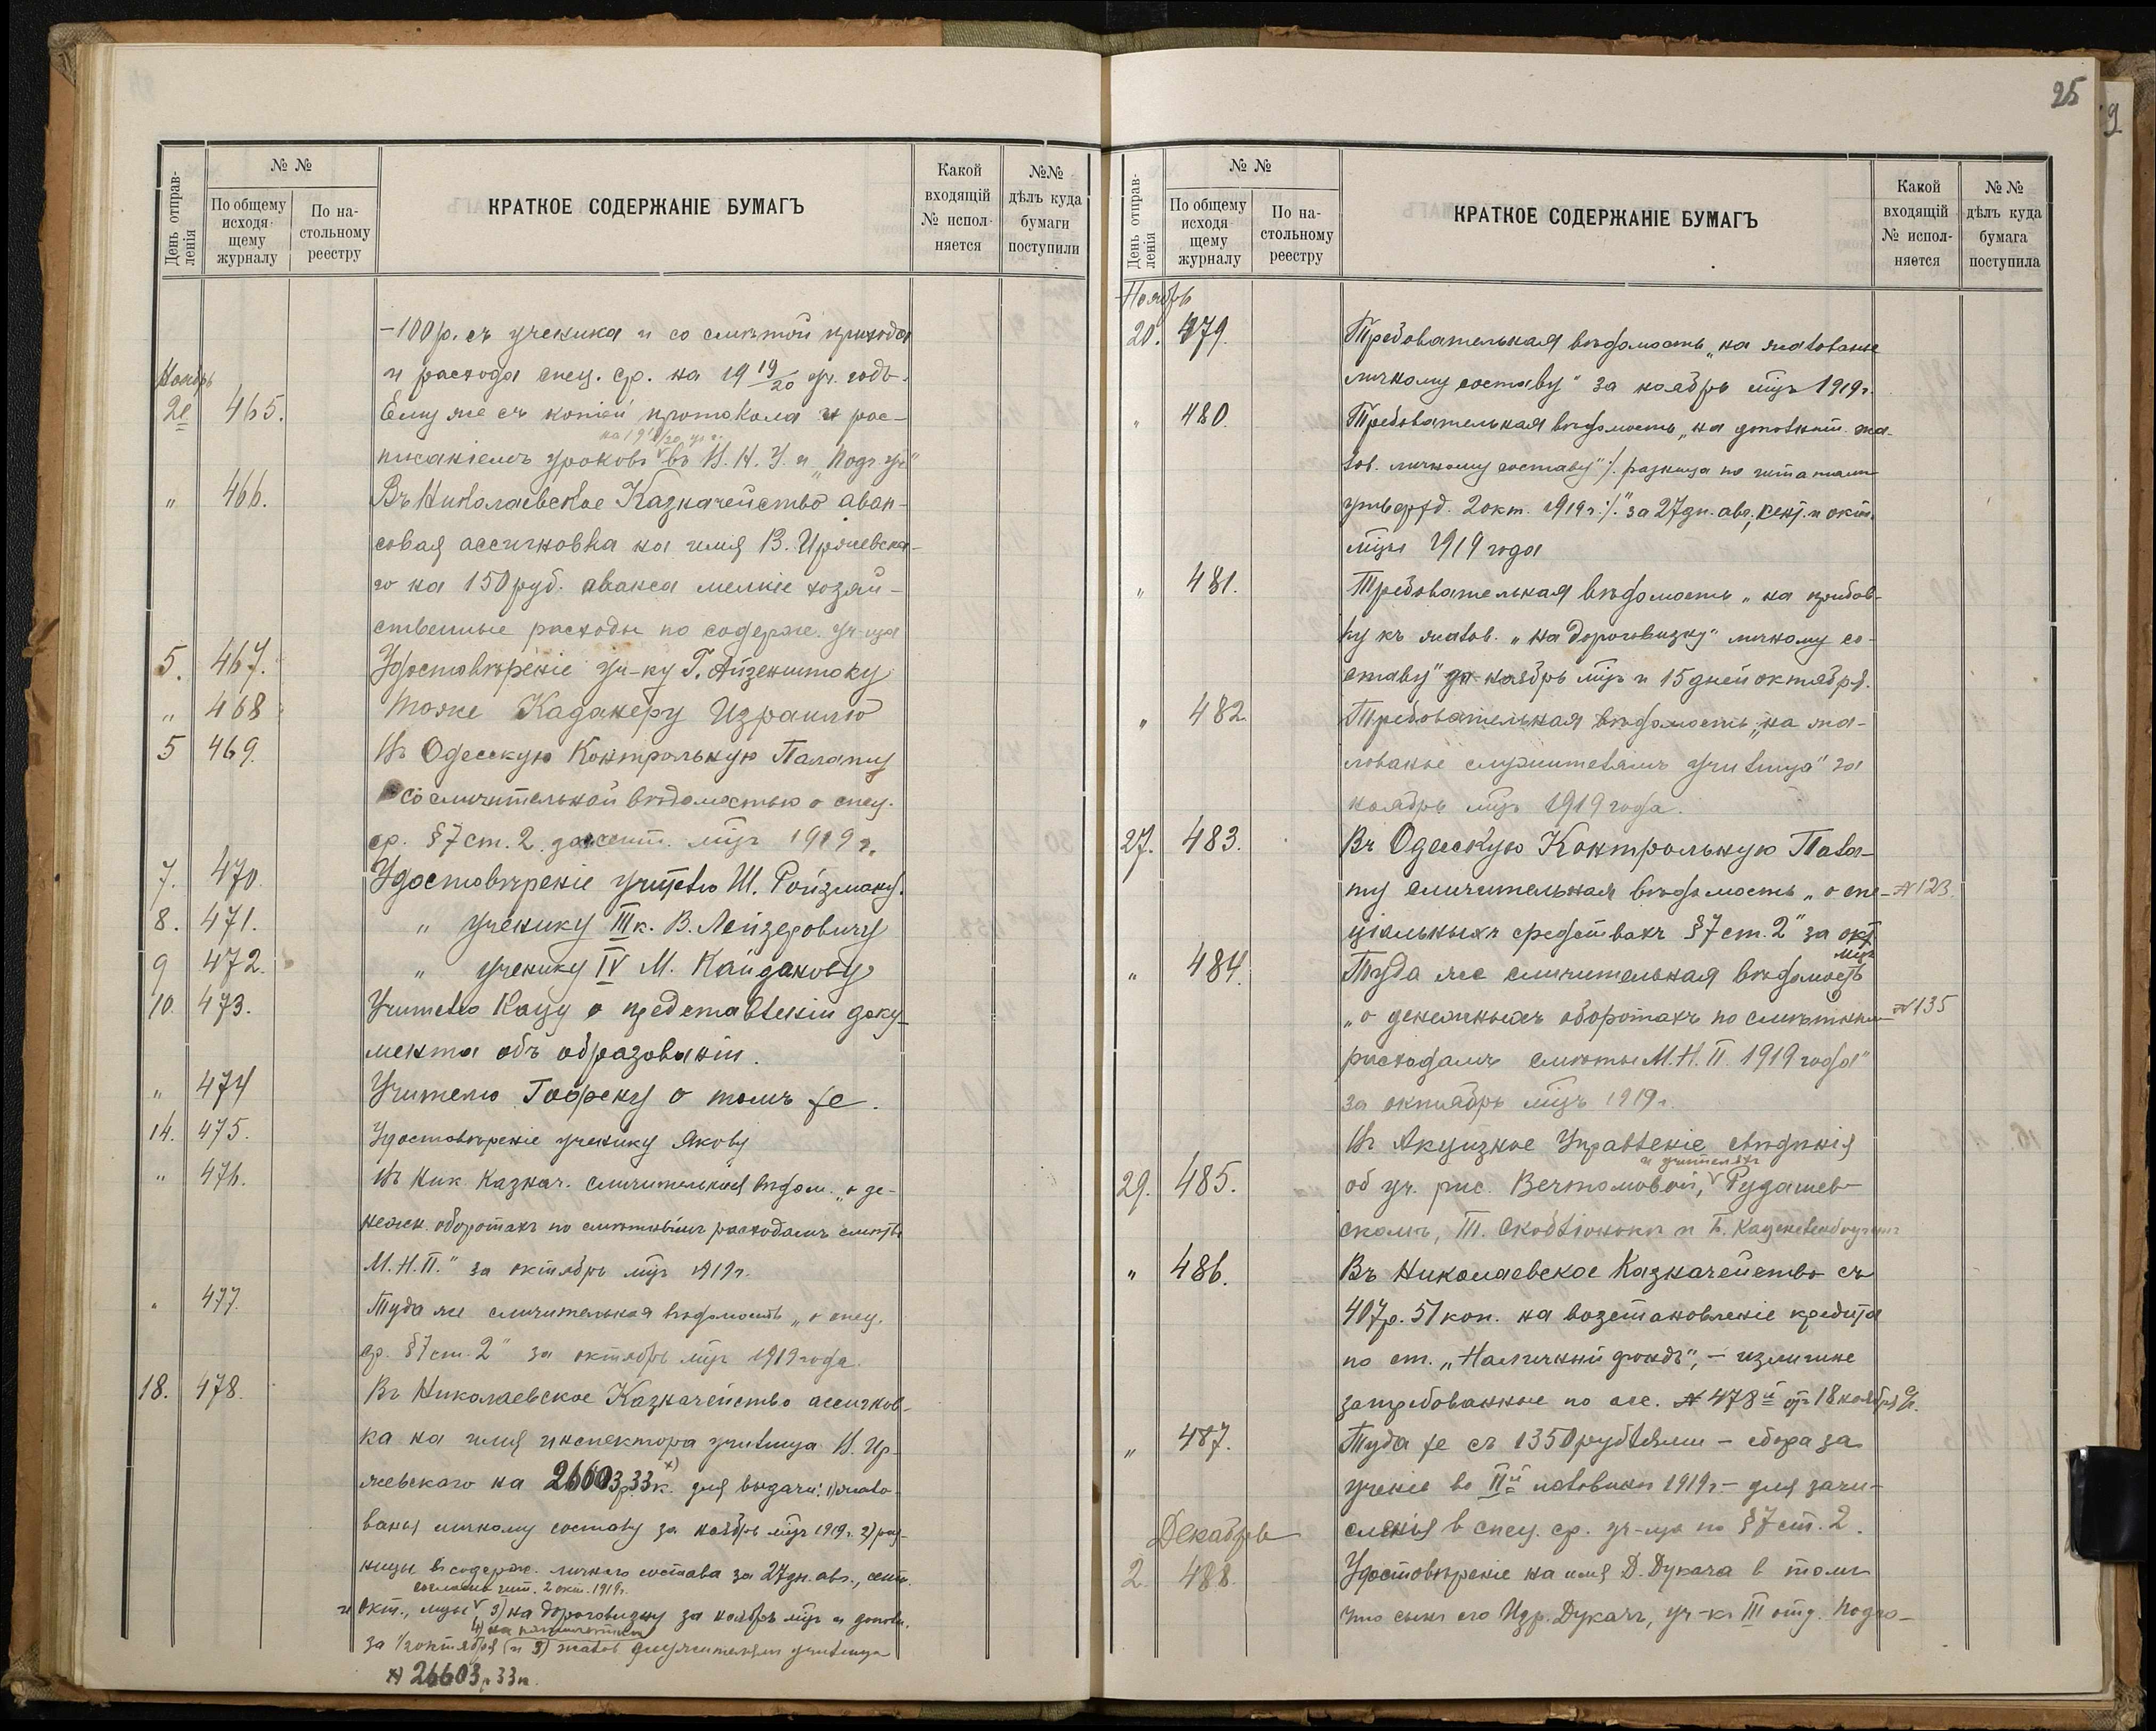 День отправ-
ленія
№ №
По общему
исходя-
щему
журналу
По на-
стольному
реестру
КРАТКОЕ СОДЕРЖАНІЕ БУМАГЪ
Какой
входящій
№ испол-
няется
№№
дѣлъ куда
бумаги
поступили
-100 р. съ ученика и со смѣтой прихода
и расхода спец. ср. на 19 19/20 уч. годъ.
Ноябрь
2е 465. Ему же съ копіей протокола и рос-
на 19 19/20 уч. г.
писаніемъ уроковъ въ Н. Н. У. и "Подг. уч"
" 466. Въ Николаевское Казначейство аван-
совая ассигновка на имя В. Иржевска-
го на 150 руб. аванса мелкіе хозяй-
ственные расходы по содерж. уч-ща
5. 467. Удостовѣреніе уч-ку Г. Айзенштоку
" 468 Тоже Кадакеру Израилю
5 469. Въ Одесскую Контрольную Палату
со сличительной вѣдомостью о спец.
ср. §7 ст. 2 за сент. мцъ 1919 г.
7. 470. Удостовѣреніе учителю Ш. Ройзману.
8. 471. " ученику III к. В. Лейзеровичу
9 472. " ученику IV М. Кайданову
10. 473. Учителю Кацу о представленіи доку-
мента объ образованіи.
" 474 Учителю Гофреку о томъ же.
14. 475. Удостовѣреніе ученику Якову
" 476. Въ Ник. Казнач. сличительная вѣдом. "о де-
нежн. оборотахъ по смѣтнымъ расходамъ смѣты
М. Н. П." за октябрь мцъ 1919 г.
" 477. Туда же сличительная вѣдомость "о спец.
ср. §7 ст. 2" за октябрь мцъ 1919 года.
18. 478. Въ Николаевское Казначейство ассигнов-
ка на имя инспектора училища Н. Ир-
жевскаго на 26603 р. 33 к. х) для выдачи: 1) жало-
ванья личному составу за ноябрь мцъ 1919 г. 2) раз-
ницы въ содерж. личнаго состава за 27 дн. авг., сент.
согласно шт. 2 окт. 1919 г.
и окт., мцы 3) на дороговизну за ноябрь мцъ и дополн.
4) на
за 1/2 октября (и 3) жалов. служителямъ училища
х) 26603 р 33 к.
25
9
День отправ-
ленія
№ №
По общему
исходя
щему
журналу
По на-
стольному
реестру
КРАТКОЕ СОДЕРЖАНІЕ БУМАГЪ
Какой
входящій
№ испол-
няется
№ №
дѣлъ куда
бумага
поступила
Ноябрь
20. 479. Требовательная вѣдомость "на жалованье
личному составу" за ноябрь мцъ 1919 г.
" 480. Требовательная вѣдомость "на дополнит. жа-
лов. личному составу" /. разница по штатамъ
утвержд. 2 окт. 1919 г. ./" за 27 дн. авг., сент. и окт.
мцы 1919 года
" 481. Требовательная вѣдомость "на прибав-
ку къ жалов. "на дороговизну" личному со-
ставу" за ноябрь мцъ и 15 дней октября.
" 482. Требовательная вѣдомость "на жа-
лованье служителямъ училища" за
ноябрь мцъ 1919 года.
27. 483. Въ Одесскую Контрольную Пала-
ту сличительная вѣдомость "о спе- № 123.
ціальныхъ средствахъ §7 ст. 2" за окт.
мцъ
" 484. Туда же сличительная вѣдомость
"о денежныхъ оборотахъ по смѣтнымъ № 135
расходамъ смѣты М. Н. П. 1919 года"
за октябрь мцъ 1919 г.
Въ Акцизное Управленіе свѣдѣнія
и учителяхъ
29. 485. об уч. рис. Вечтомовой, Рудашев-
скомъ, Ш.
" 486. Въ Николаевское Казначейство съ
407 р. 51 коп. на возстановленіе кредита
по ст. "Наличный фондъ", - излишне
затребованное по асс. № 478й отъ 18 ноября с/г.
" 487. Туда же съ 1350 рублями - сбора за
ученіе во IIй половинѣ 1919 г. - для зачи-
сленія в спец. ср. уч-ща по §7 ст. 2.
Декабрь
2. 488. Удостовѣреніе на имя Д. Дукача в томъ
что сынъ его Изр. Дукачъ, уч-къ III отд. Подго-